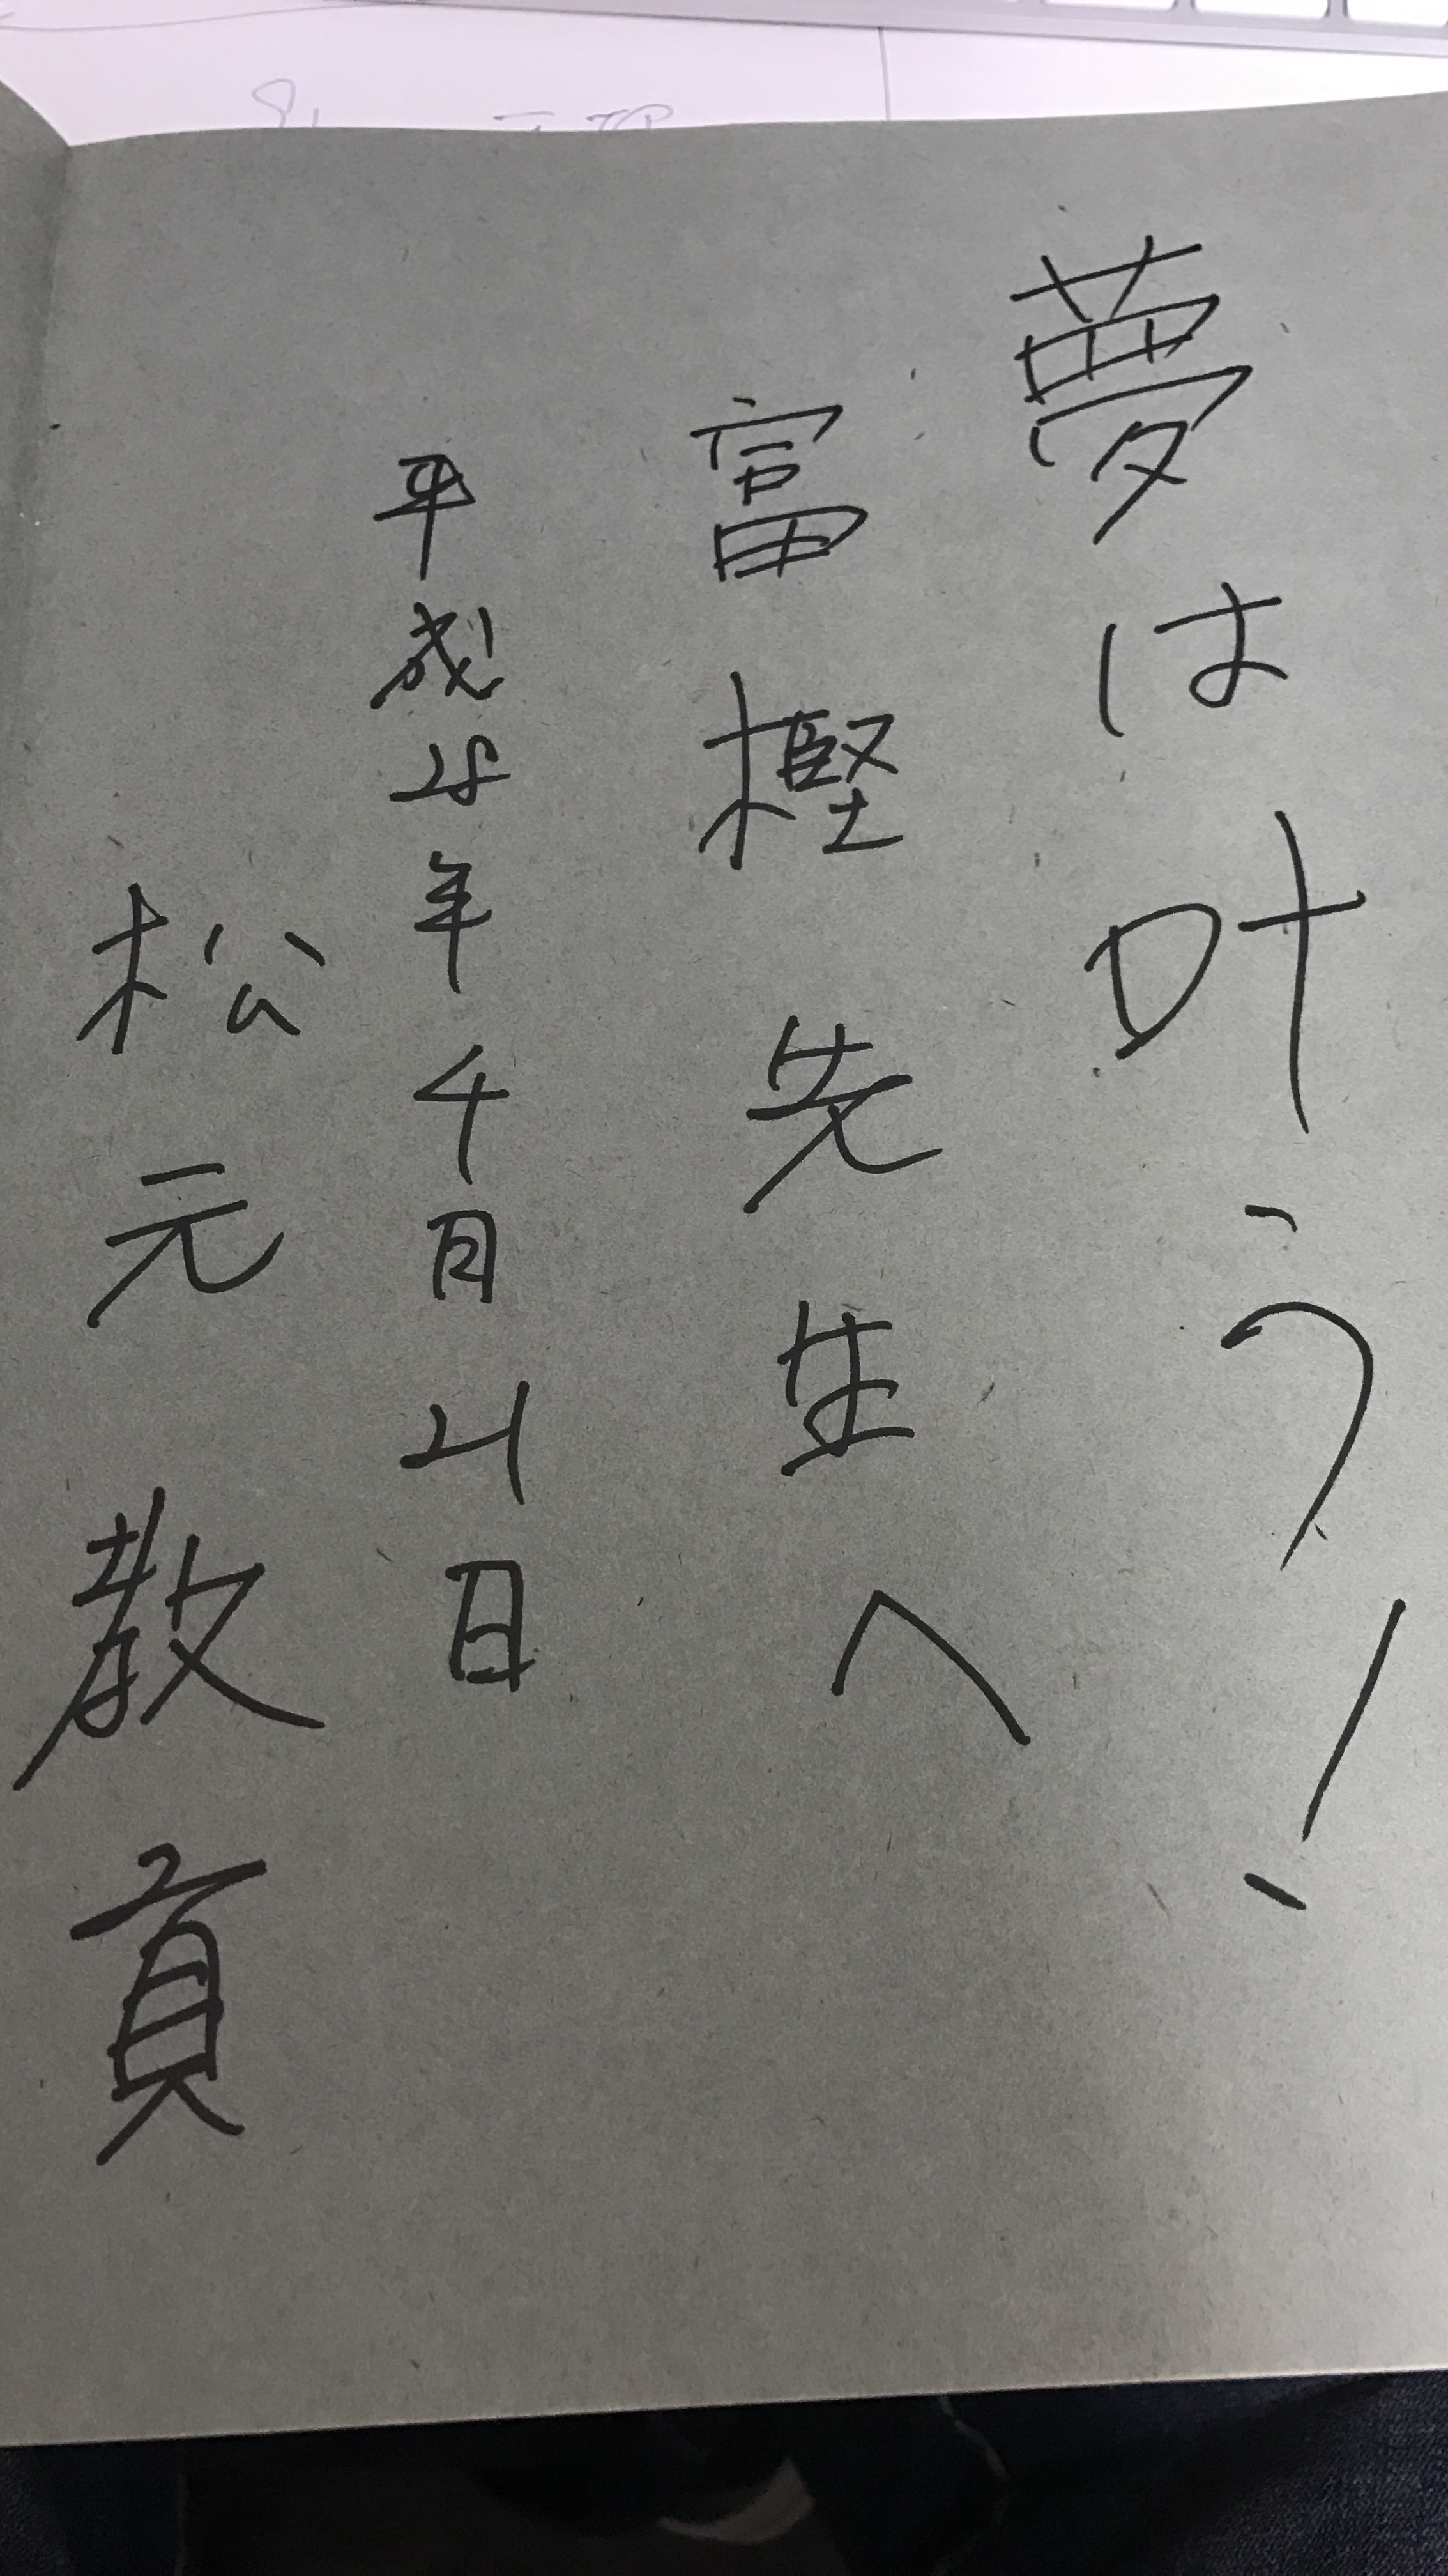 夢は叶う!
富樫先生へ
平成28年4月21日
松元教貢